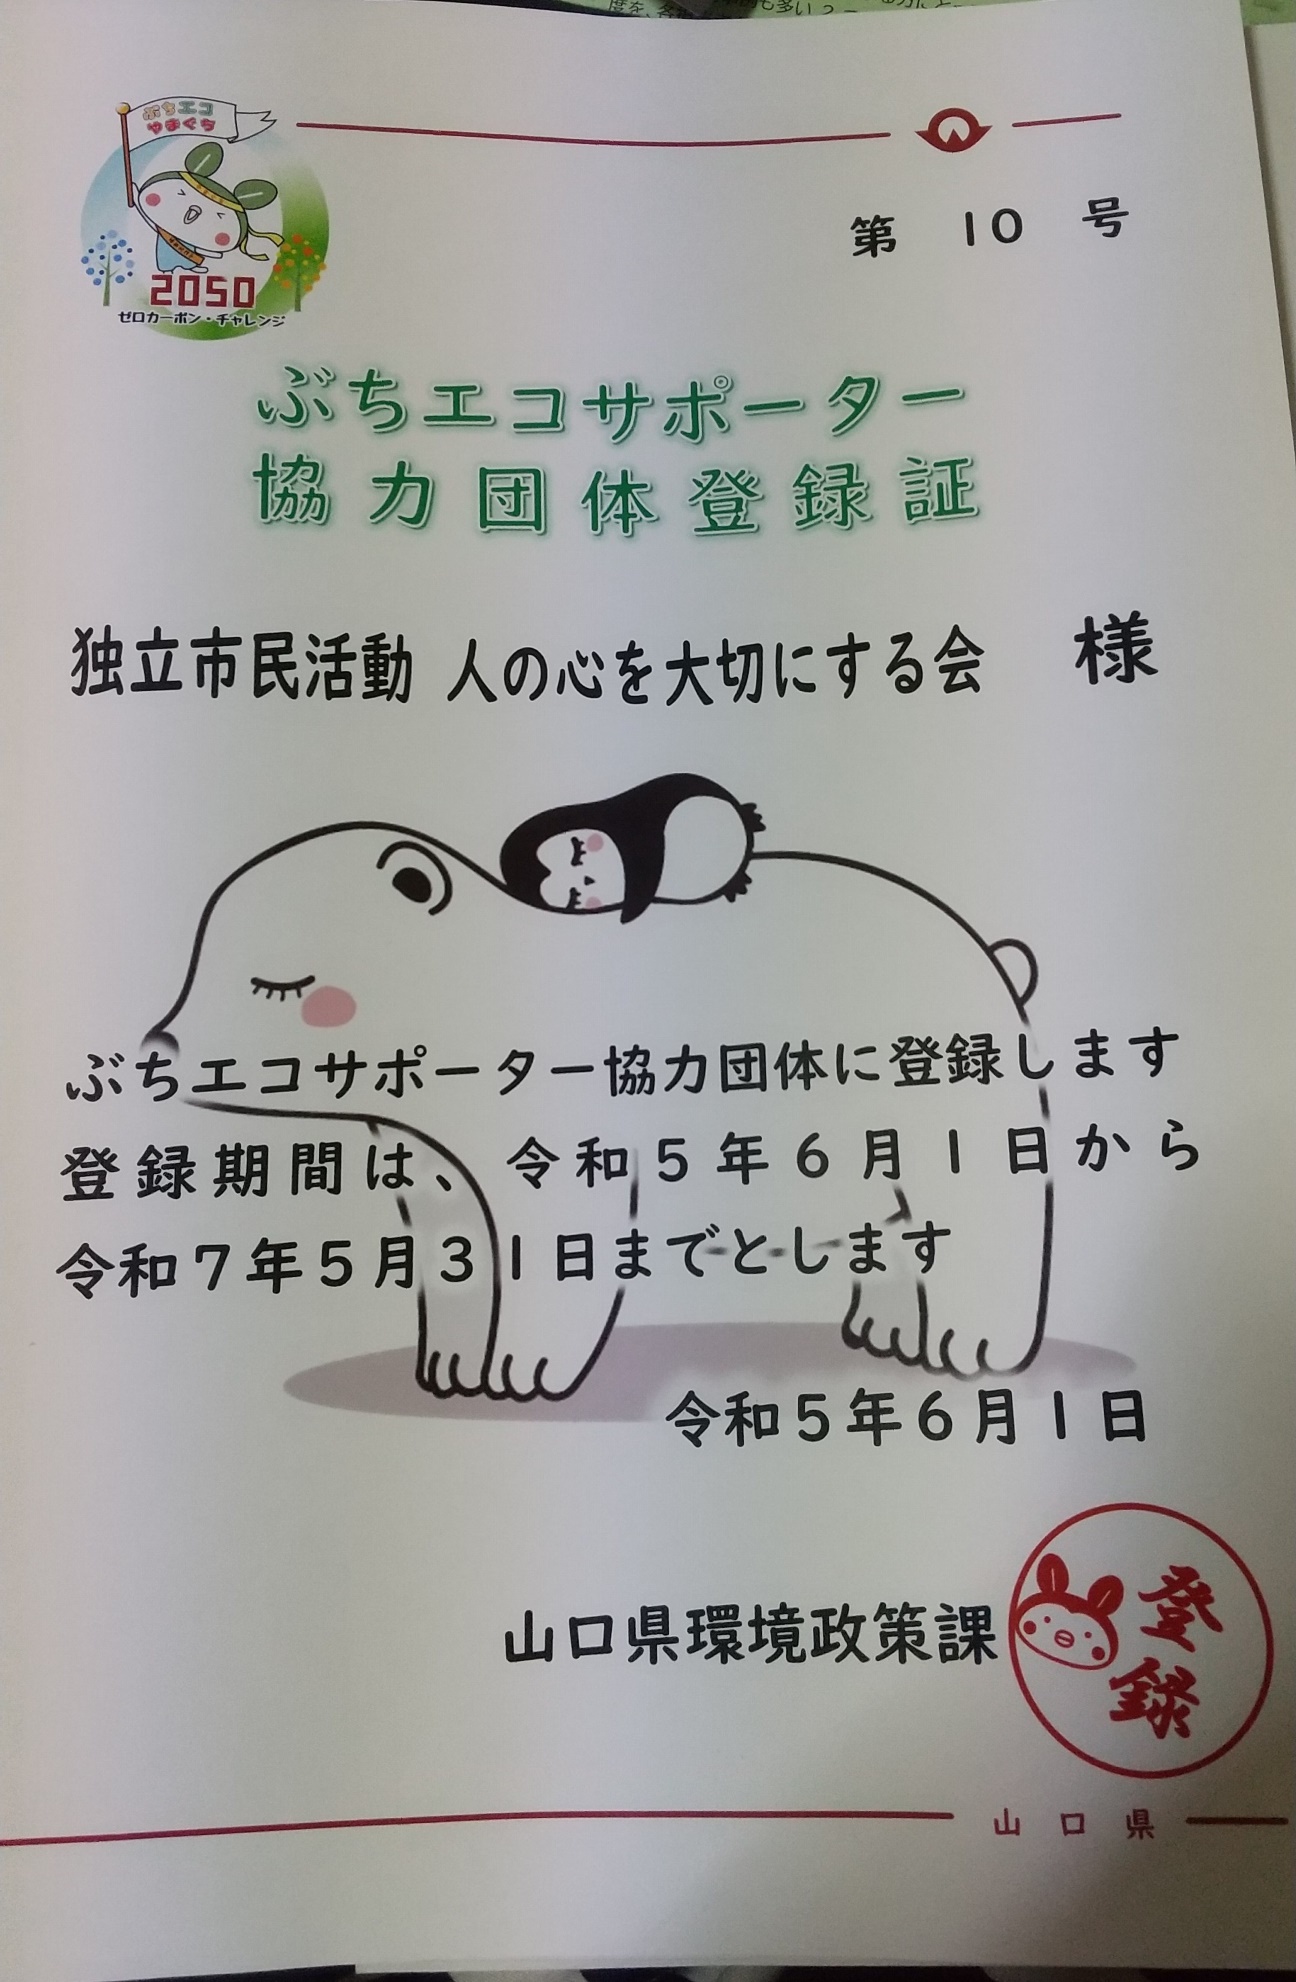 ぶちエコ
やまぐち
2050
ゼロカーボン・チャレンジ
第 10 号
ぶちエコサポーター
協力団体登録証
独立市民活動 人の心を大切にする会 様
ぶちエコサポーター協力団体に登録します
登録期間は、令和5年6月1日から
令和7年5月31日までとします
令和5年6月1日
山口県環境政策課
登録
山口県